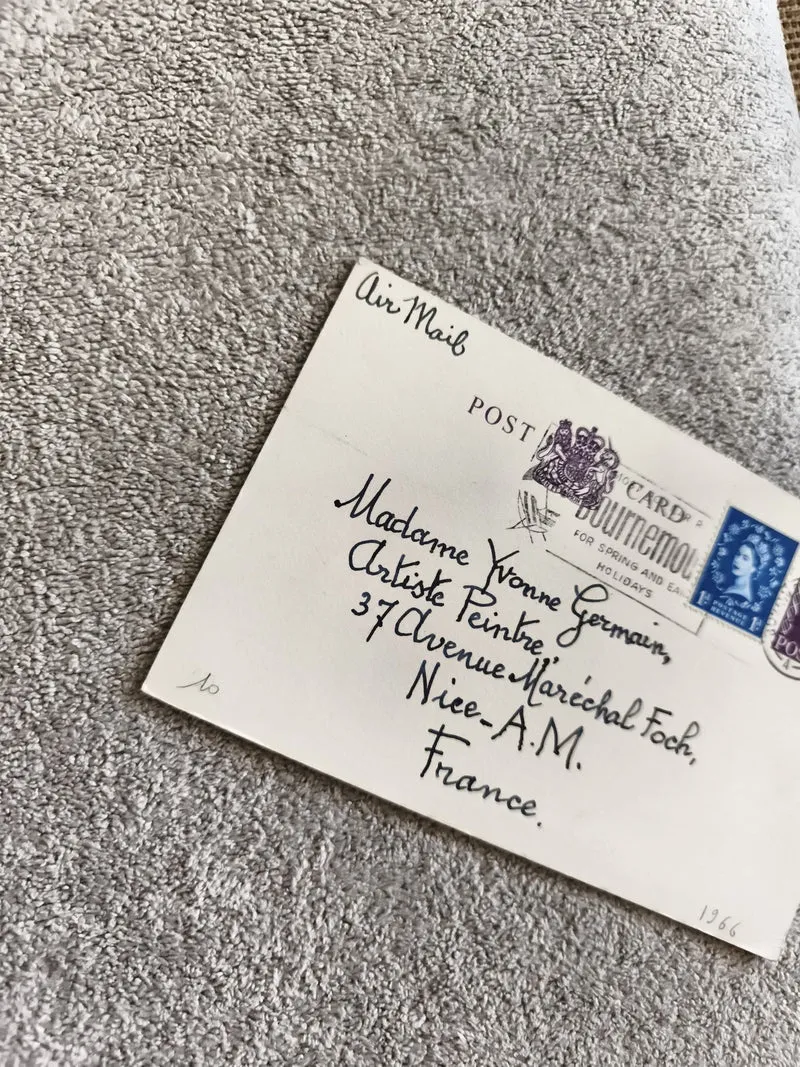 Air Mail
POST CARD
Bournemou
FOR SPRING AND EA
HOLIDAYS
1D POSTAGE REVENUE 1D
POS
Madame Yvonne Germain,
Artiste Peintre,
37 Avenue Maréchal Foch,
Nice-A.M.
France.
10
1966